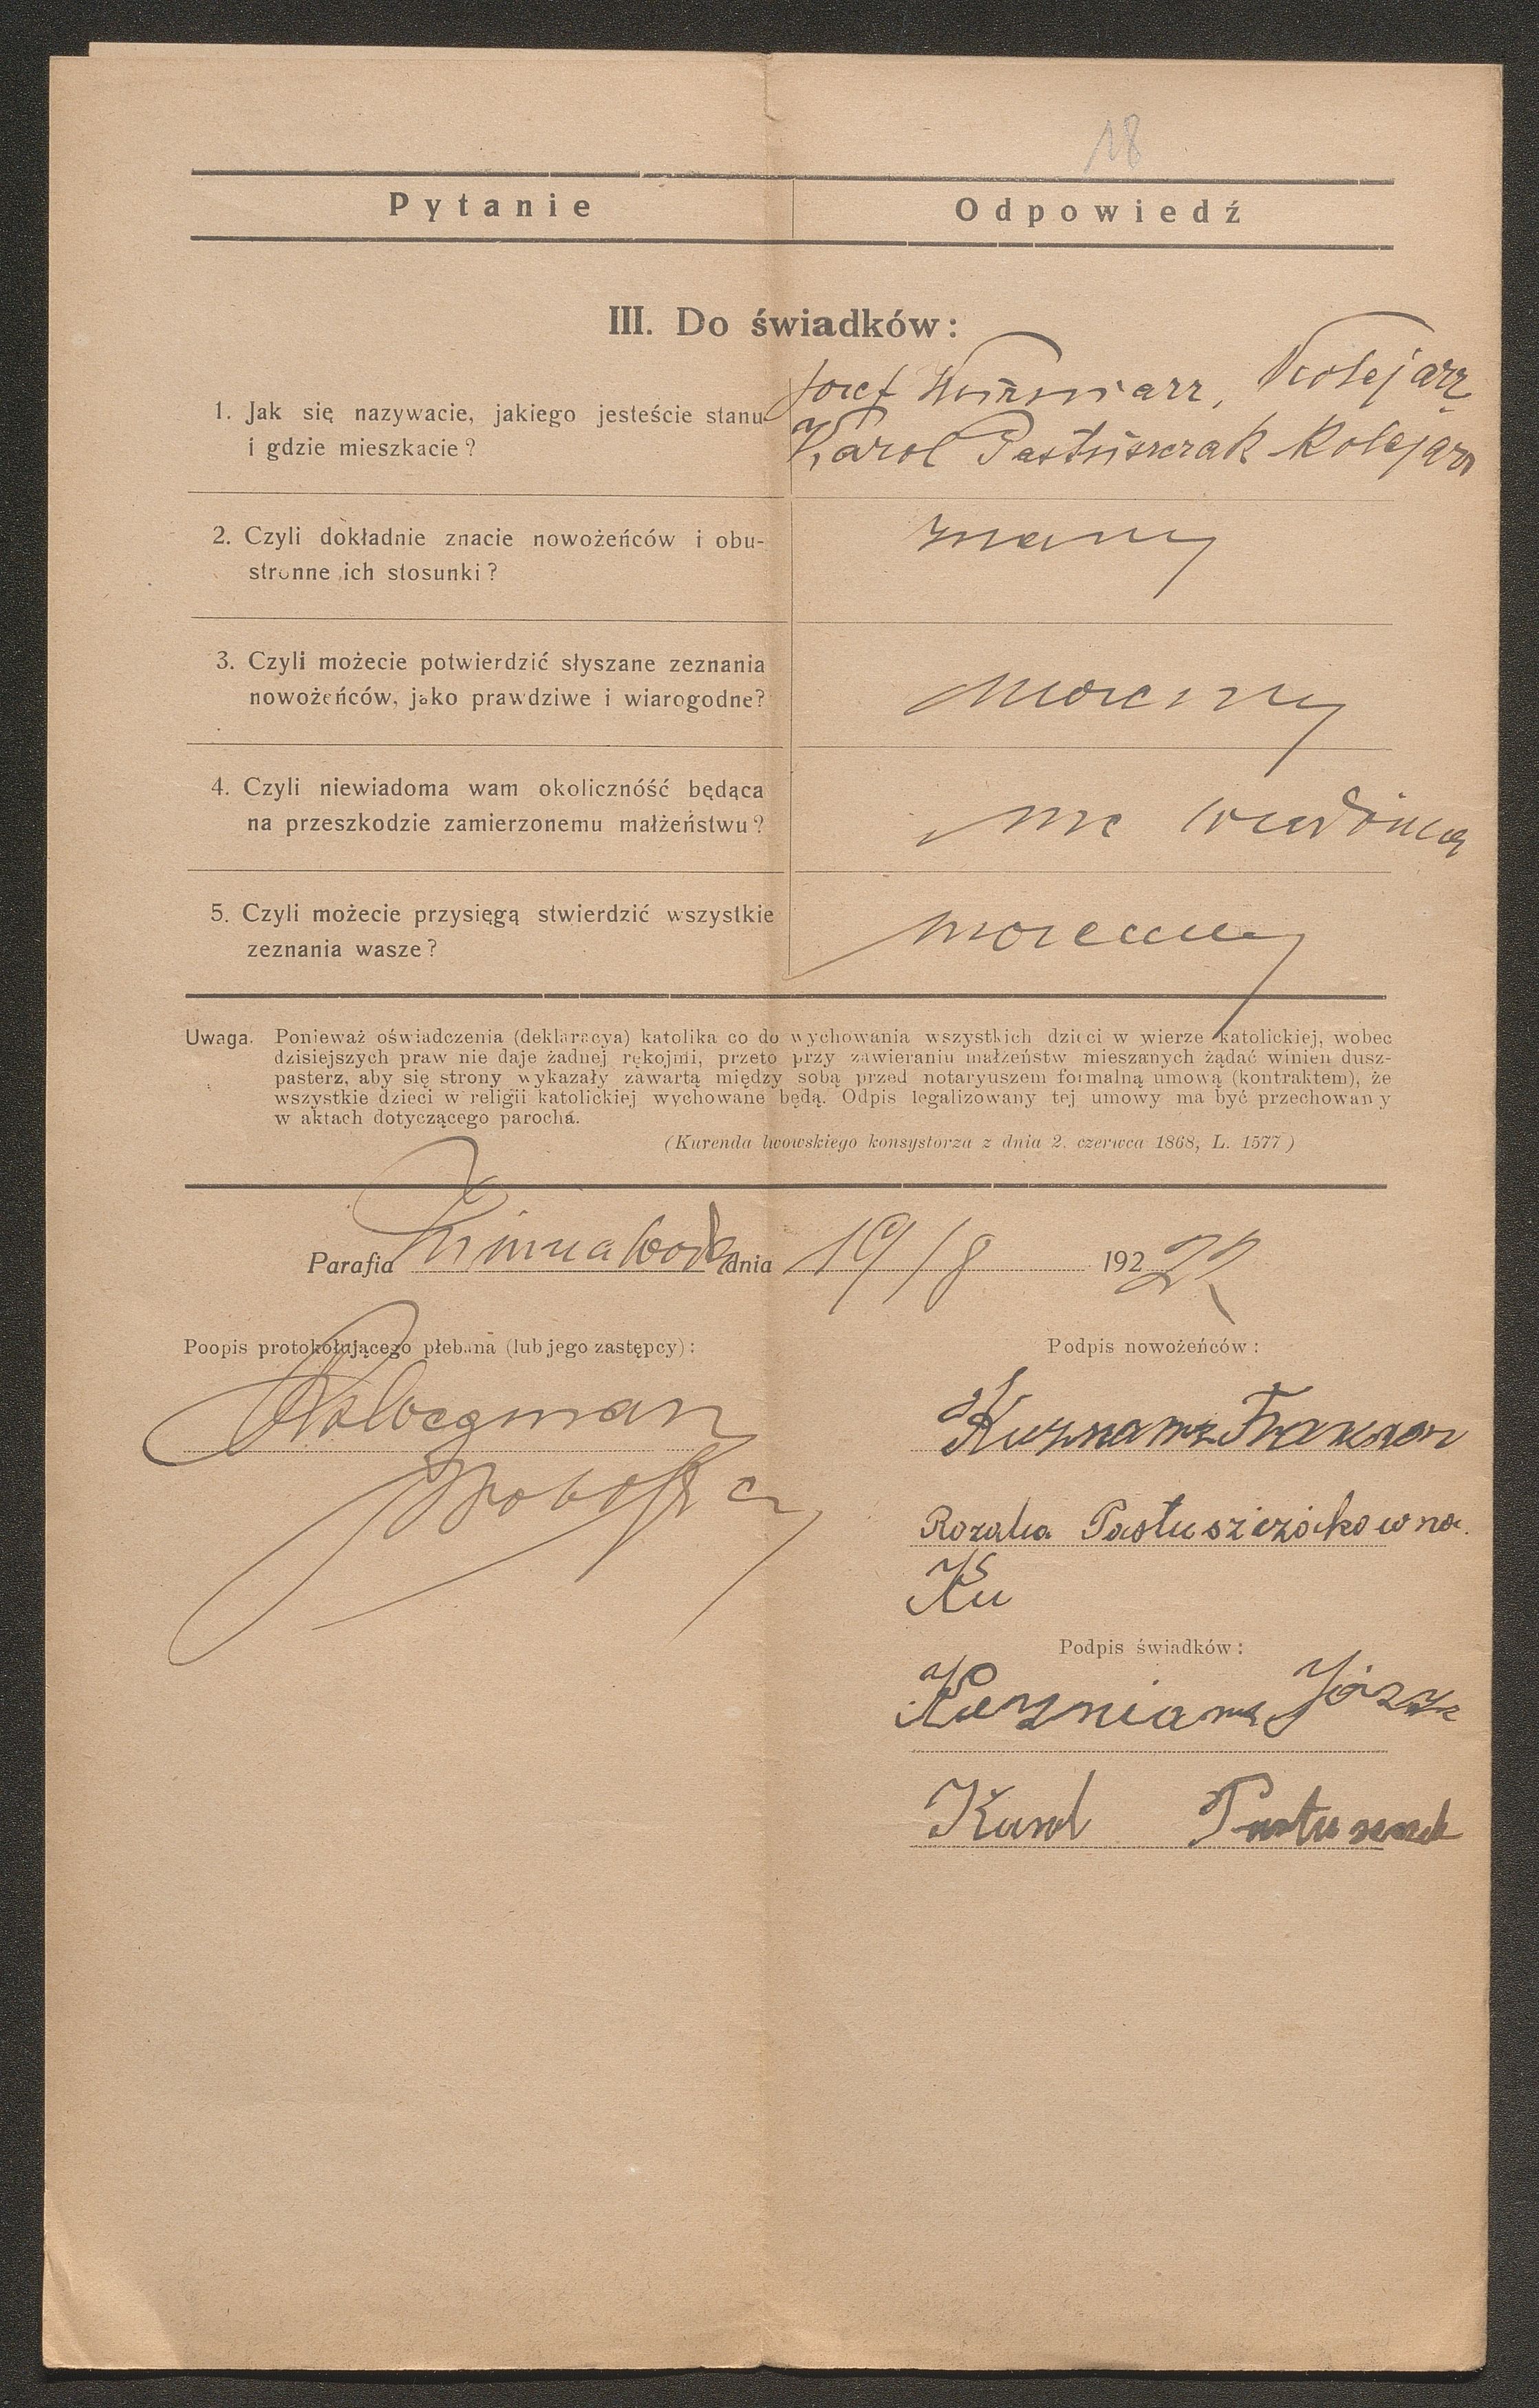 18
Pytanie
Odpowiedź
III. Do świadków:
1. Jak się nazywacie, jakiego jesteście stanu
i gdzie mieszkacie?
Józef Kuźniarz, Kolejarz
Karol Pastuszczak Kolejarz
2. Czyli dokładnie znacie nowożeńców i obu-
stronne ich stosunki?
znamy
3. Czyli możecie potwierdzić słyszane zeznania
nowożeńców, jako prawdziwe i wiarogodne?
możemy
4. Czyli niewiadoma wam okolicznóść będąca
na przeszkodzie zamierzonemu małżeństwu?
nie wiadoma
5. Czyli możecie przysięgą stwierdzić wszystkie
zeznania wasze?
możemy
Uwaga. Ponieważ oświadczenia (deklaracya) katolika co do wychowania wszystkich dzieci w wierze katolickiej, wobec
dzisiejszych praw nie daje żadnej rękojmi, przeto przy zawieraniu małżeństw mieszanych żądać winien dusz-
pasterz, aby się strony wykazały zawartą między sobą przed notaryuszem formalną umową (kontraktem), że
wszystkie dzieci w religii katolickiej wychowane będą. Odpis legalizowany tej umowy ma być przechowany
w aktach dotyczącego parocha.
(Kurenda lwowskiego konsystorza z dnia 2. czerwca 1868, L. 1577)
Parafia Zimnawoda dnia 19/8 1922
Poopis protokołującego plebana (lub jego zastępcy):
Podpis nowożeńców:
Proboszcz
Rozalia Pastuszczakówna
Ku
Podpis świadków:
Kuzniarz Józef
Karol Pastuszczak